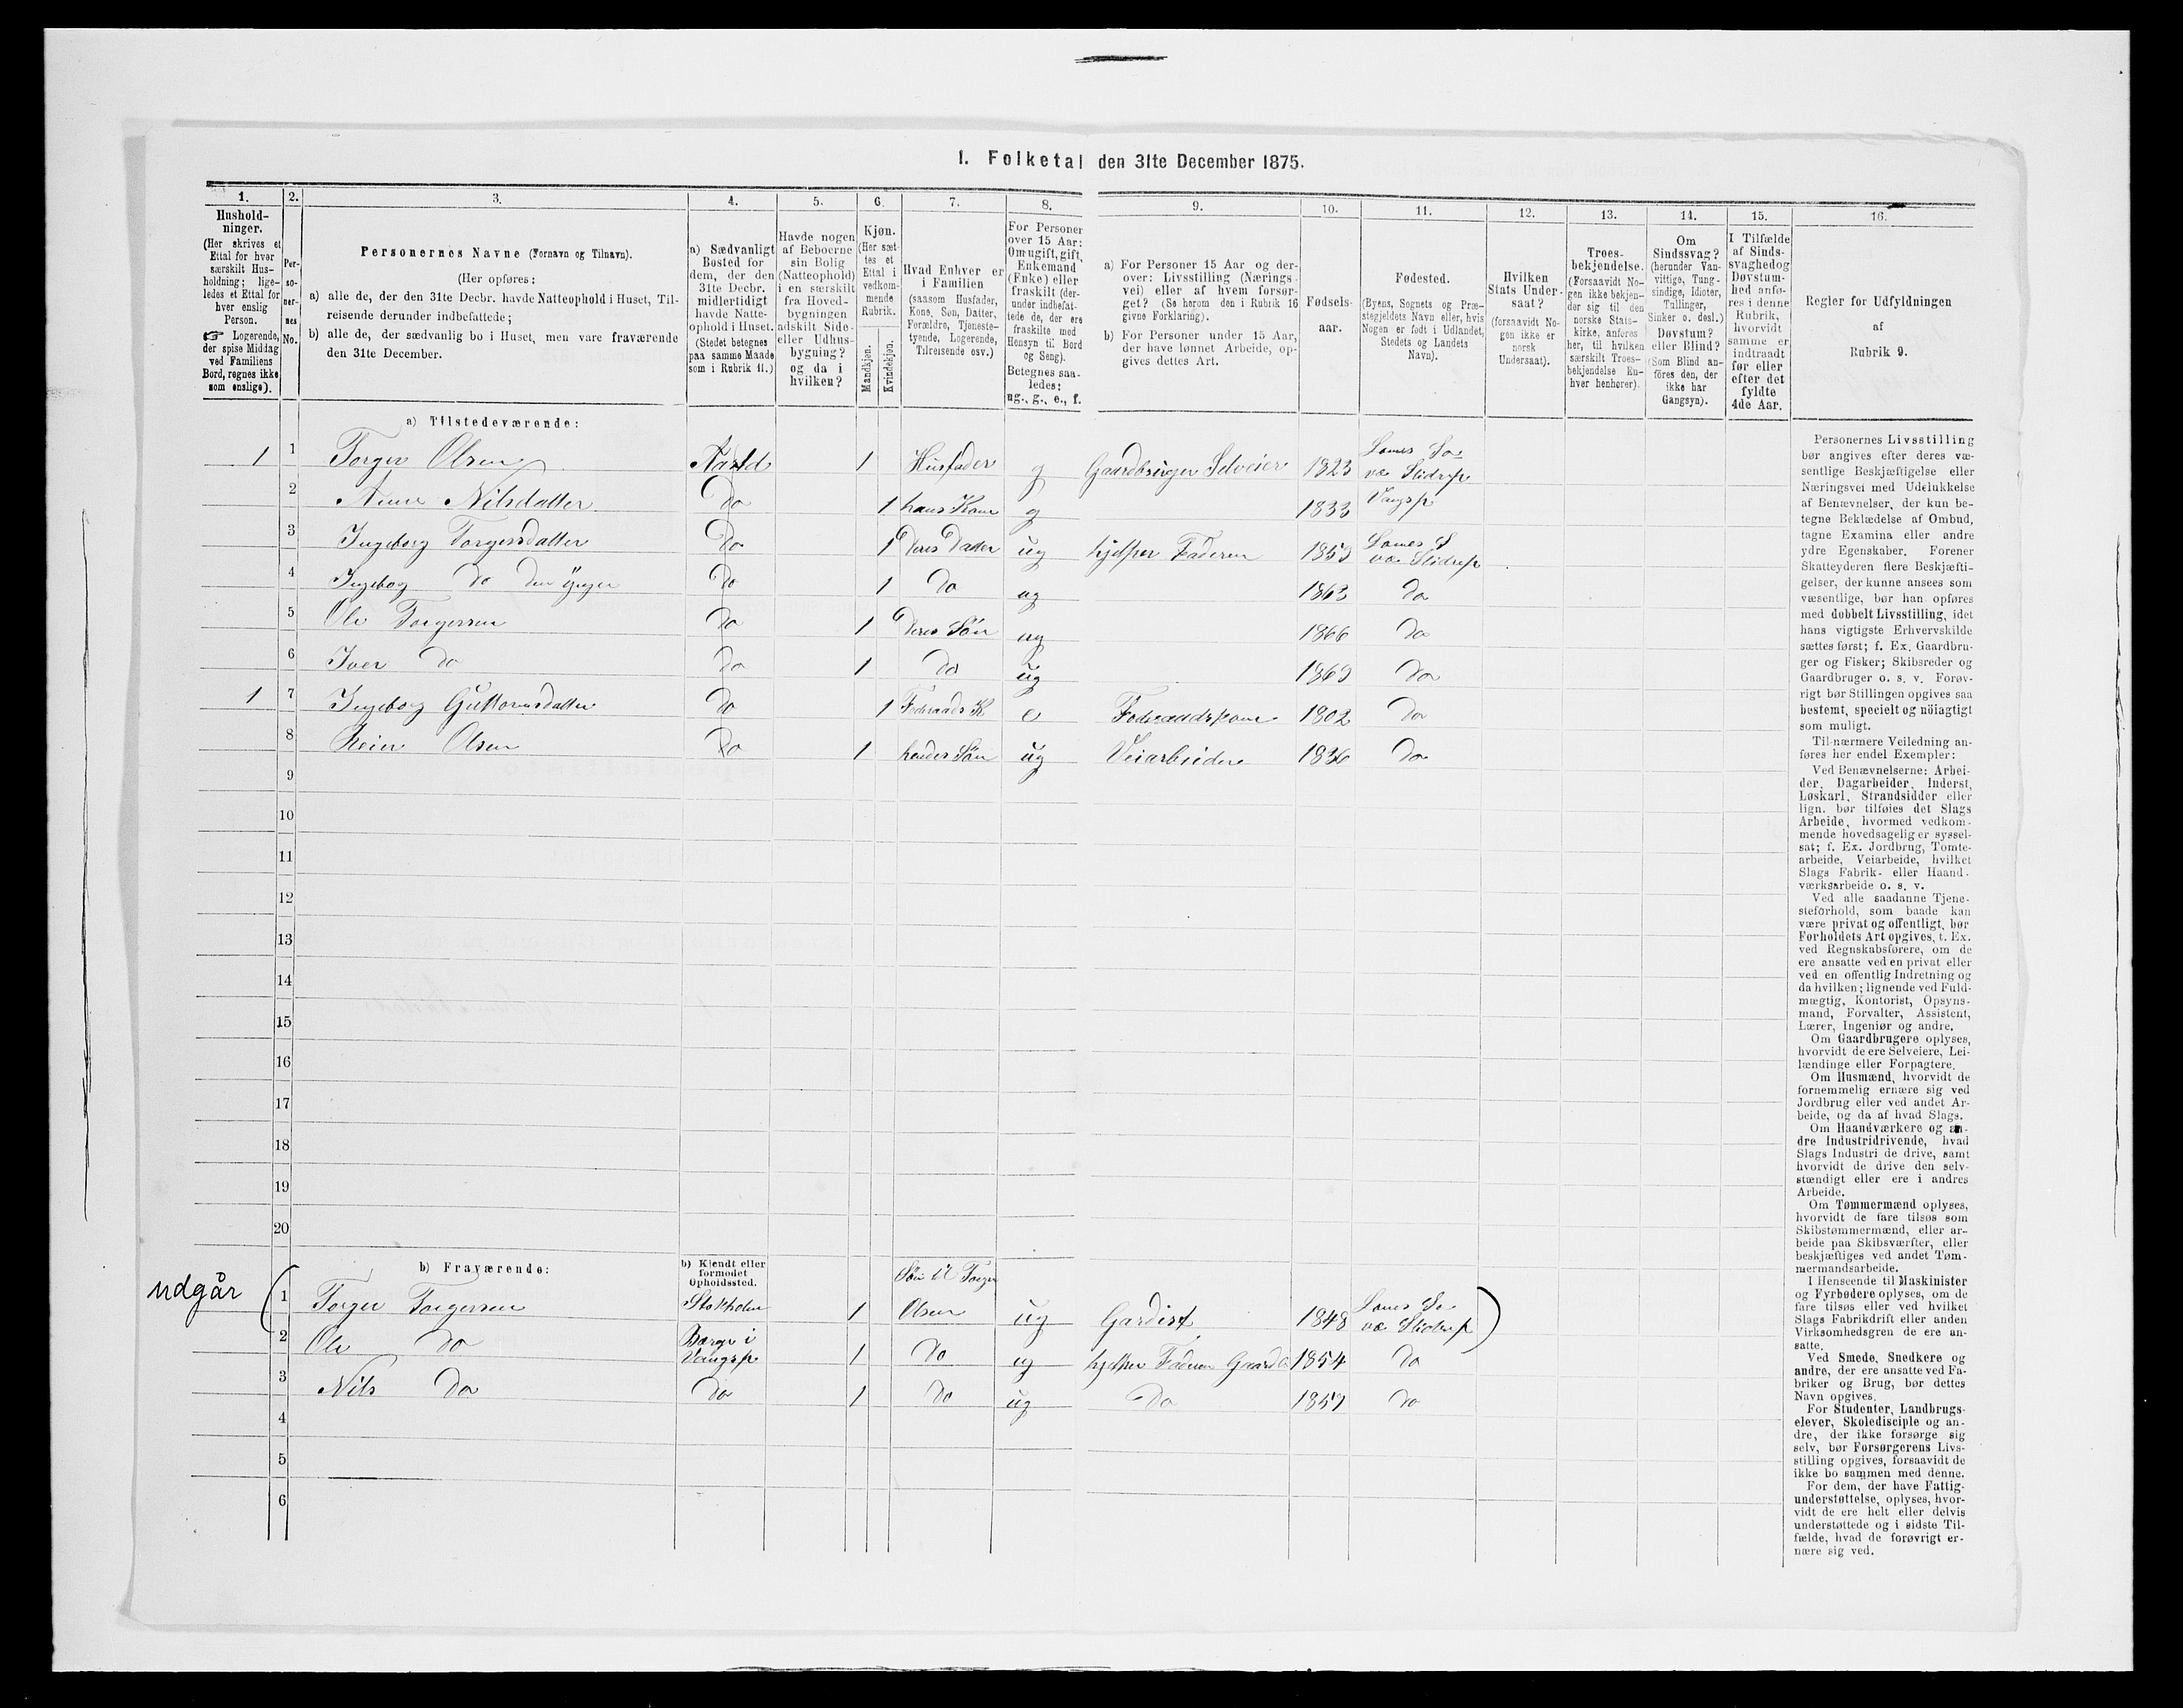 I. Folketal den 31te December 1875.
1. 2. 3. 4. 5. 6. 7. 8. 9. 10. 11. 12. 13. 14. 15. 16.
Hushold-
ninger.
(Her skrives et
Ettal for hver
særskilt Hus-
holdning; lige-
ledes et Ettal for
hver enslig
Person.
☞ Logerende,
der spise Middag
ved Familiens
Bord, regnes ikke
som enslige).
Per-
so-
ner-
nes
No.
Personernes Navne (Fornavn og Tilnavn).
(Her opføres:
a) alle de, der den 31te Decbr. havde Natteophold i Huset, Til-
reisende derunder indbefattede;
b) alle de, der sædvanlig bo i Huset, men vare fraværende
den 31te December.
a) Sædvanligt
Bosted for
dem, der den
31te Decbr.
midlertidigt
havde Natte-
ophold i Huset.
(Stedet betegnes
paa samme Maade
som i Rubrik 11.)
Havde nogen
af Beboerne
sin Bolig
(Natteophold)
i en særskilt
fra Hoved-
bygningen
adskilt Side-
eller Udhus-
bygning?
og da i
hvilken?
Kjøn.
(Her sæt-
tes et
Ettal i
vedkom-
mende
Rubrik.
Mandkjøn.
Kvindekjøn.
Hvad Enhver er
i Familien
(saasom Husfader,
Kone, Søn, Datter,
Forældre, Tjeneste-
tyende, Logerende,
Tilreisende osv.)
For Personer
over 15 Aar:
Om ugift, gift,
Enkemand
(Enke) eller
fraskilt (der-
under indbefat-
tede de, der ere
fraskilte med
Hensyn til Bord
og Seng).
Betegnes saa-
ledes:
ug., g., e., f.
a) For Personer 15 Aar og der-
over: Livsstilling (Nærings-
vei) eller af hvem forsør-
get? (Se herom den i Rubrik 16
givne Forklaring).
b) For Personer under 15 Aar,
der have lønnet Arbeide, op-
gives dettes Art.
Fødsels-
aar.
Fødested.
(Byens, Sognets og Præ-
stegjeldets Navn eller, hvis
Nogen er født i Udlandet,
Stedets og Landets
Navn).
Hvilken
Stats Under-
saat?
(forsaavidt No-
gen ikke er
norsk
Undersaat).
Troes-
bekjendelse.
(Forsaavidt No-
gen ikke bekjen-
der sig til den
norske Stats-
kirke, anføres
her, til hvilken
særskilt Troes-
bekjendelse En-
hver henhører).
Om
Sindssvag?
(herunder Van-
vittige, Tung-
sindige, Idioter,
Tullinger,
Sinker o. desl.)
Døvstum?
eller Blind?
(Som Blind an-
føres den, der
ikke har
Gangsyn).
I Tilfælde
af Sinds-
svaghed og
Døvstum-
hed anfø-
res i denne
Rubrik,
hvorvidt
samme er
indtraadt
før eller
efter det
fyldte
4de Aar.
Regler for Udfyldningen
af
Rubrik 9.
a) Tilstedeværende:
1 1 Torger Olsen 1 Husfader g Gaardbruger Selveier 1823 Lomes So væ Slidrep
2 Anne Nilsdatter Do 1 hans Kone g 1833 Vangsp
3 Ingeborg Torgersdatter Do 1 Deres Datter ug hjelper Faderen 1859 Lomes S væ Slidrep
4 Ingebog Do den Yngre Do 1 Do ug 1863 Do
5 Ole Torgersen Do 1 Deres Søn ug 1866 Do
6 Iver Do Do 1 Do ug 1869 Do
1 7 Ingeborg Guttormsdatter Do 1 Føderaads K e Føderaadskone 1802 Do
8 Reier Olsen Do 1 hendes Søn ug Veiarbeider 1836 Do
9
10
11
12
13
14
15
16
17
18
19
20
b) Fraværende:
b) Kjendt eller
formodet
Opholdssted.
udgår
1 Torger Torgersen Stokholm 1 Søn til Torger Olsen ug Gardist 1848 Lomes So væ Slidrep
2 Ole Do Børge i Vangsp 1 Do ug hjelper Faderen Gaard 1854 Do
3 Nils Do Do 1 Do ug Do 1857 Do
4
5
6
Personernes Livsstilling
bør angives efter deres væ-
sentlige Beskjæftigelse eller
Næringsvei med Udelukkelse
af Benævnelser, der kun be-
tegne Beklædelse af Ombud,
tagne Examina eller andre
ydre Egenskaber. Forener
Skatteyderen flere Beskjæfti-
gelser, der kunne ansees som
væsentlige, bør han opføres
med dobbelt Livsstilling, idet
hans vigtigste Erhvervskilde
sættes først; f. Ex. Gaardbru-
ger og Fisker; Skibsreder og
Gaardbruger o. s. v. Forøv-
rigt bør Stillingen opgives saa
bestemt, specielt og nöiagtigt
som muligt.
Til nærmere Veiledning an-
føres her endel Exempler:
Ved Benævnelserne: Arbei-
der, Dagarbeider, Inderst,
Løskarl, Strandsidder eller
lign. bør tilføies det Slags
Arbeide, hvormed vedkom-
mende hovedsagelig er syssel-
sat; f. Ex. Jordbrug, Tomte-
arbeide, Veiarbeide, hvilket
Slags Fabrik- eller Haand-
værksarbeide o. s. v.
Ved alle saadanne Tjene-
steforhold, som baade kan
være privat og offentligt, bør
Forholdets Art opgives, t. Ex.
ved Regnskabsførere, om de
ere ansatte ved en privat eller
ved en offentlig Indretning og
da hvilken; lignende ved Fuld-
mægtig, Kontorist, Opsyns-
mand, Forvalter, Assistent,
Lærer, Ingeniør og andre.
Om Gaardbrugere oplyses,
hvorvidt de ere Selveiere, Lei-
lændinge eller Forpagtere.
Om Husmænd, hvorvidt de
fornemmelig ernære sig ved
Jordbrug eller ved andet Ar-
beide, og da af hvad Slags.
Om Haandværkere og an-
dre Industridrivende, hvad
Slags Industri de drive, samt
hvorvidt de drive den selv-
stændigt eller ere i andres
Arbeide.
Om Tømmermænd oplyses,
hvorvidt de fare tilsøs som
Skibstømmermænd, eller ar-
beide paa Skibsværfter, eller
beskjæftiges ved andet Tøm-
mermandsarbeide.
I Henseende til Maskinister
og Fyrbødere oplyses, om de
fare tilsøs eller ved hvilket
Slags Fabrikdrift eller anden
Virksomhedsgren de ere an-
satte.
Ved Smede, Snedkere og
andre, der ere ansatte ved Fa-
briker og Brug, bør dettes
Navn opgives.
For Studenter, Landbrugs-
elever, Skoledisciple og an-
dre, der ikke forsørge sig
selv, bør Forsørgerens Livs-
stilling opgives, forsaavidt de
ikke bo sammen med denne.
For dem, der have Fattig-
understøttelse, oplyses, hvor-
vidt de ere helt eller delvis
understøttede og i sidste Til-
fælde, hvad de forøvrigt er-
nære sig ved.